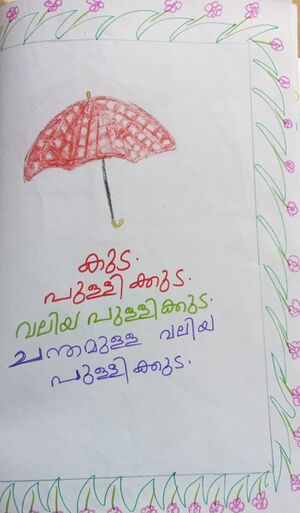 കുട.
പുള്ളിക്കുട.
വലിയ പുള്ളിക്കുട.
ചന്തമുള്ള വലിയ
പുള്ളിക്കുട.